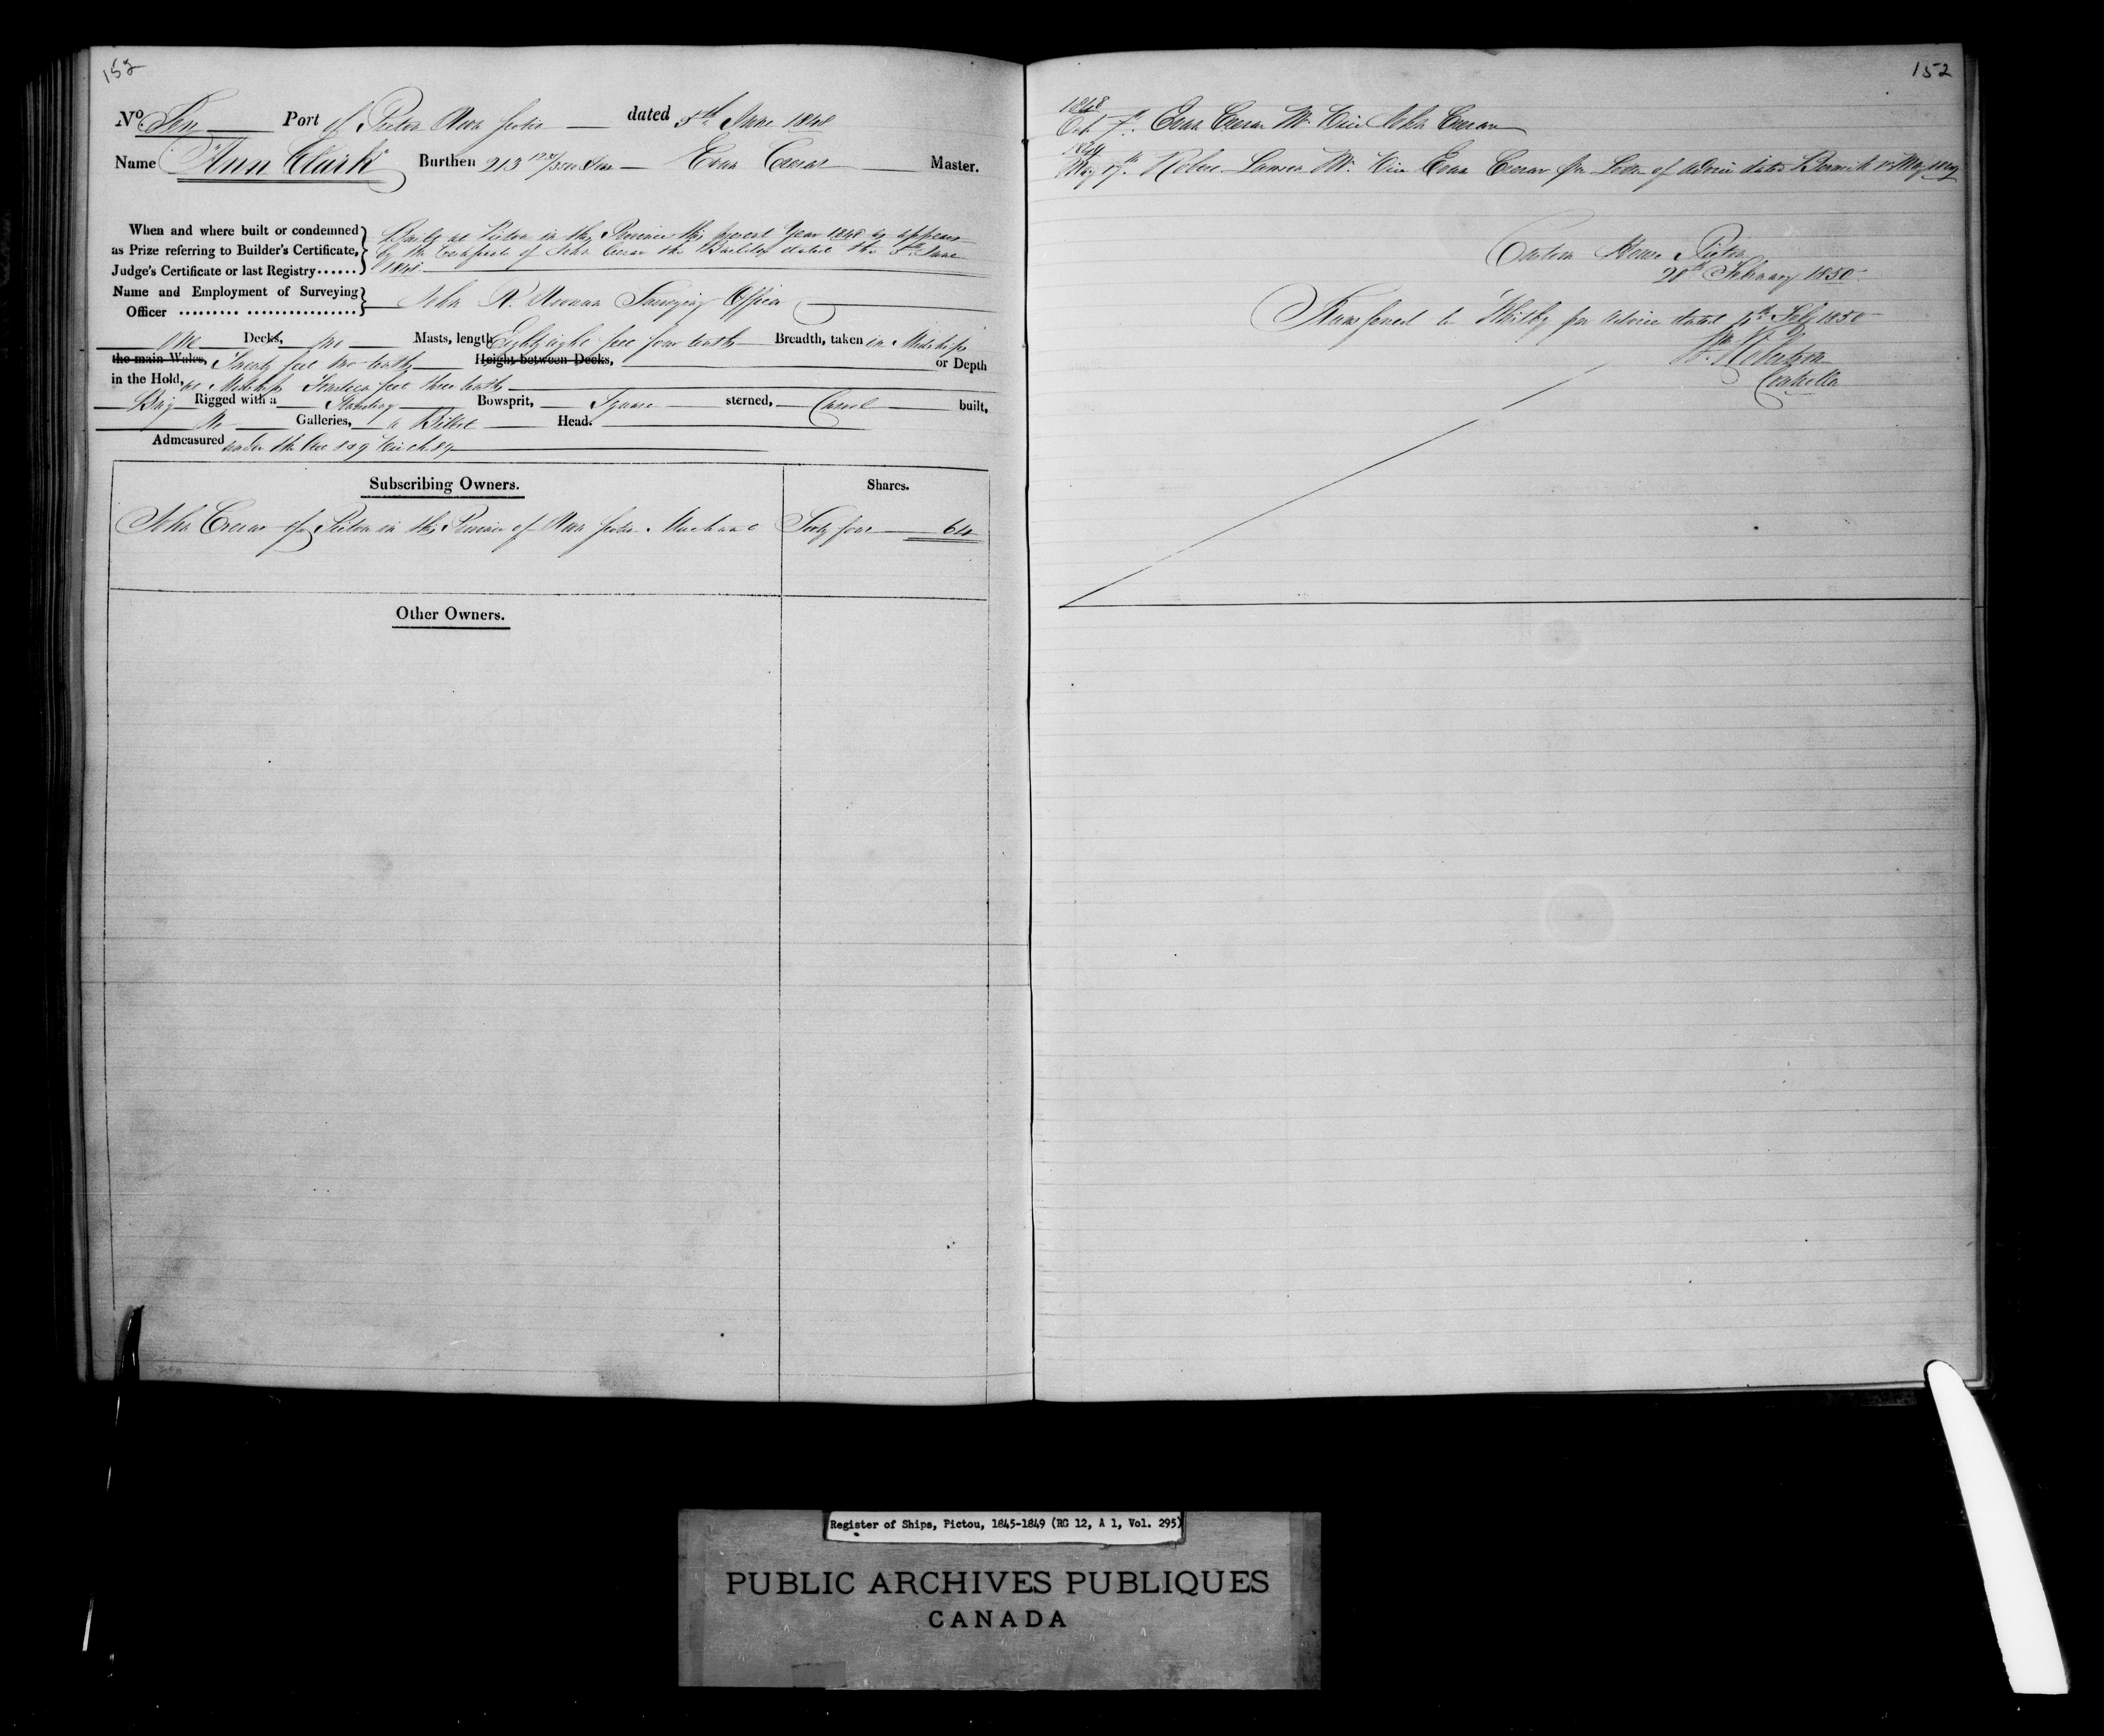 152
No. Ten Port of Pictou Nova Scotia dated 5th June 1848
Name "Ann Clark" Burthen 213 /3500 Tons Evan Crerar Master.
When and where built or condemned
as Prize referring to Builder's Certificate,
Judge's Certificate or last Registry......
Built at Pictou in this Province this present Year 1848 as appears
by the Certificate of John Crerar the Builder dated the 5th June
1848
Name and Employment of Surveying
Officer ......... ................
John R. Noonan Surveying Officer
One Decks, two Masts, length Eighty eight feet four tenths Breadth, taken in Midships
the main Wales, Twenty feet two tenths Height between Decks, or Depth
in the Hold, at Midships Fourteen feet three tenths
Brig Rigged with a Standing Bowsprit, Square sterned, Carvel built,
No Galleries, a Billet Head.
Admeasured under the Act 8 & 9 Vict ch 89
Subscribing Owners. Shares.
John Crerar of Pictou in the Province of Nova Scotia Merchant Sixty four 64
Other Owners.
152
1848
Oct 7th. Evan Crerar Mr. Vice John Crerar
1849
May 17th. Robert Lawson Mr. Vice Evan Crerar per Letter of Advice dated Berwick May 1849
Custom House Pictou
28th February 1850
Transferred to Whitby per Advice dated Feby 1850
Robertson
Controller
Register of Ships, Pictou, 1845-1849 (RG 12, A 1, Vol. 295)
PUBLIC ARCHIVES PUBLIQUES
CANADA